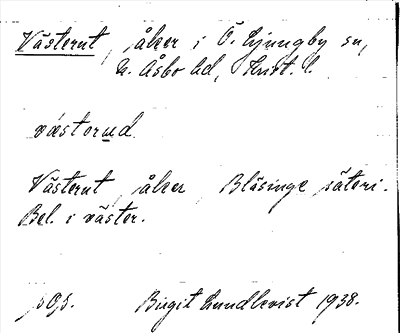 Västerut, åker i Ö. Ljungby sn,
N. Åsbo hd, Krist. l.
västerud
Västerut, åker, Blåsinge säteri.
Bel. i väster.
Birgit Lundkvist 1938.